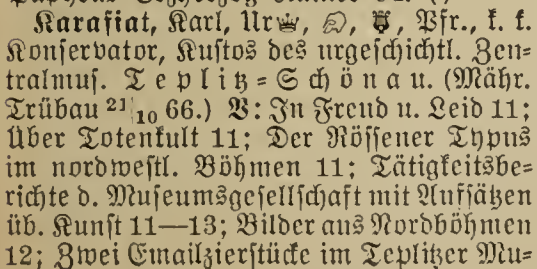 Karafiat, Karl, Ur, Pfr., k. k.
Konservator, Kustos des urgeschichtl. Zen-
tralmus. Teplitz-Schönau. (Mähr.
Trübau 21/10 66.) V: In Freud u. Leid 11;
Über Totenkult 11; Der Rössener Typus
im nordwestl. Böhmen 11; Tätigkeitsbe-
richte d. Museumsgesellschaft mit Aufsätzen
üb. Kunst 11—13; Bilder aus Nordböhmen
12; Zwei Emailzierstücke im Teplitzer Mu-